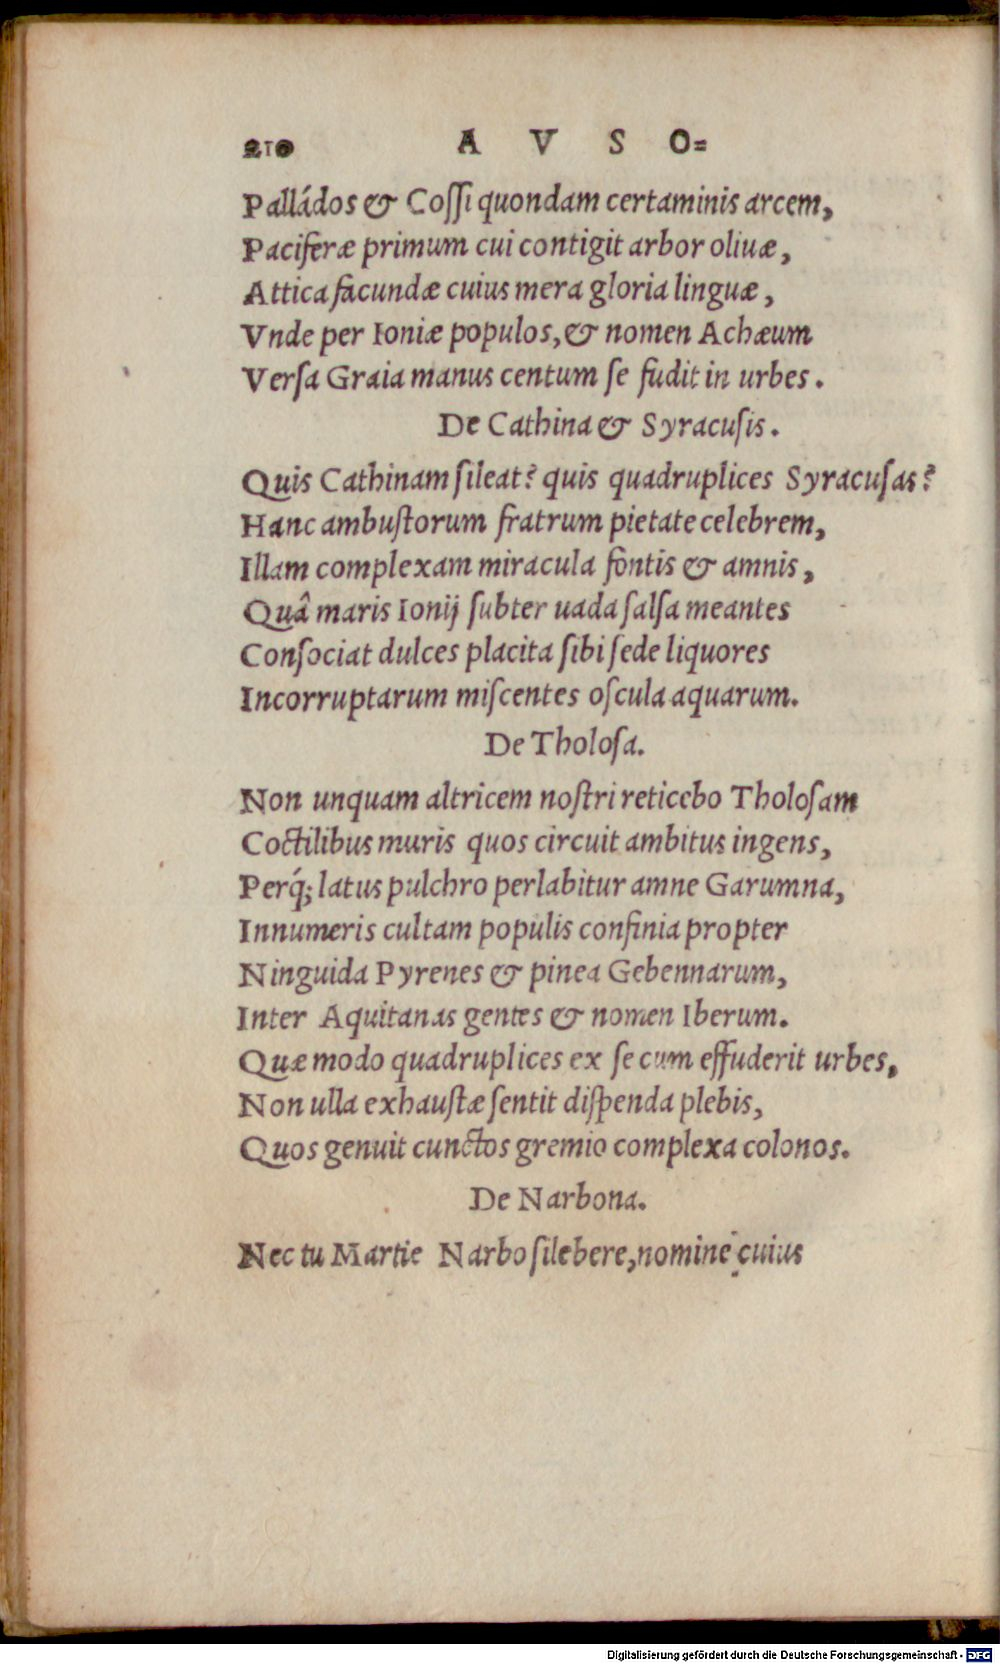 210 A V S O=
Palládos & Coſſi quondam certaminis arcem,
Paciferæ primum cui contigit arbor oliuæ,
Attica facundæ cuius mera gloria linguæ,
Vnde per Ioniæ populos, & nomen Achæum
Verſa Graia manus centum ſe fudit in urbes.
De Cathina & Syracuſis.
Quis Cathinam ſileat? quis quadruplices Syracuſas?
Hanc ambuſtorum fratrum pietate celebrem,
Illam complexam miracula fontis & amnis,
Quâ maris Ionij ſubter uada ſalſa meantes
Conſociat dulces placita ſibi ſede liquores
Incorruptarum miſcentes oſcula aquarum.
De Tholoſa.
Non unquam altricem noſtri reticebo Tholoſam
Coctilibus muris quos circuit ambitus ingens,
Perq́; latus pulchro perlabitur amne Garumna,
Innumeris cultam populis confinia propter
Ninguida Pyrenes & pinea Gebennarum,
Inter Aquitanas gentes & nomen Iberum.
Quæ modo quadruplices ex ſe cum effuderit urbes,
Non ulla exhauſtæ ſentit diſpenda plebis,
Quos genuit cunctos gremio complexa colonos.
De Narbona.
Nec tu Martie Narbo ſilebere, nomine cuius
Digitalisierung gefördert durch die Deutsche Forschungsgemeinschaft - DFG